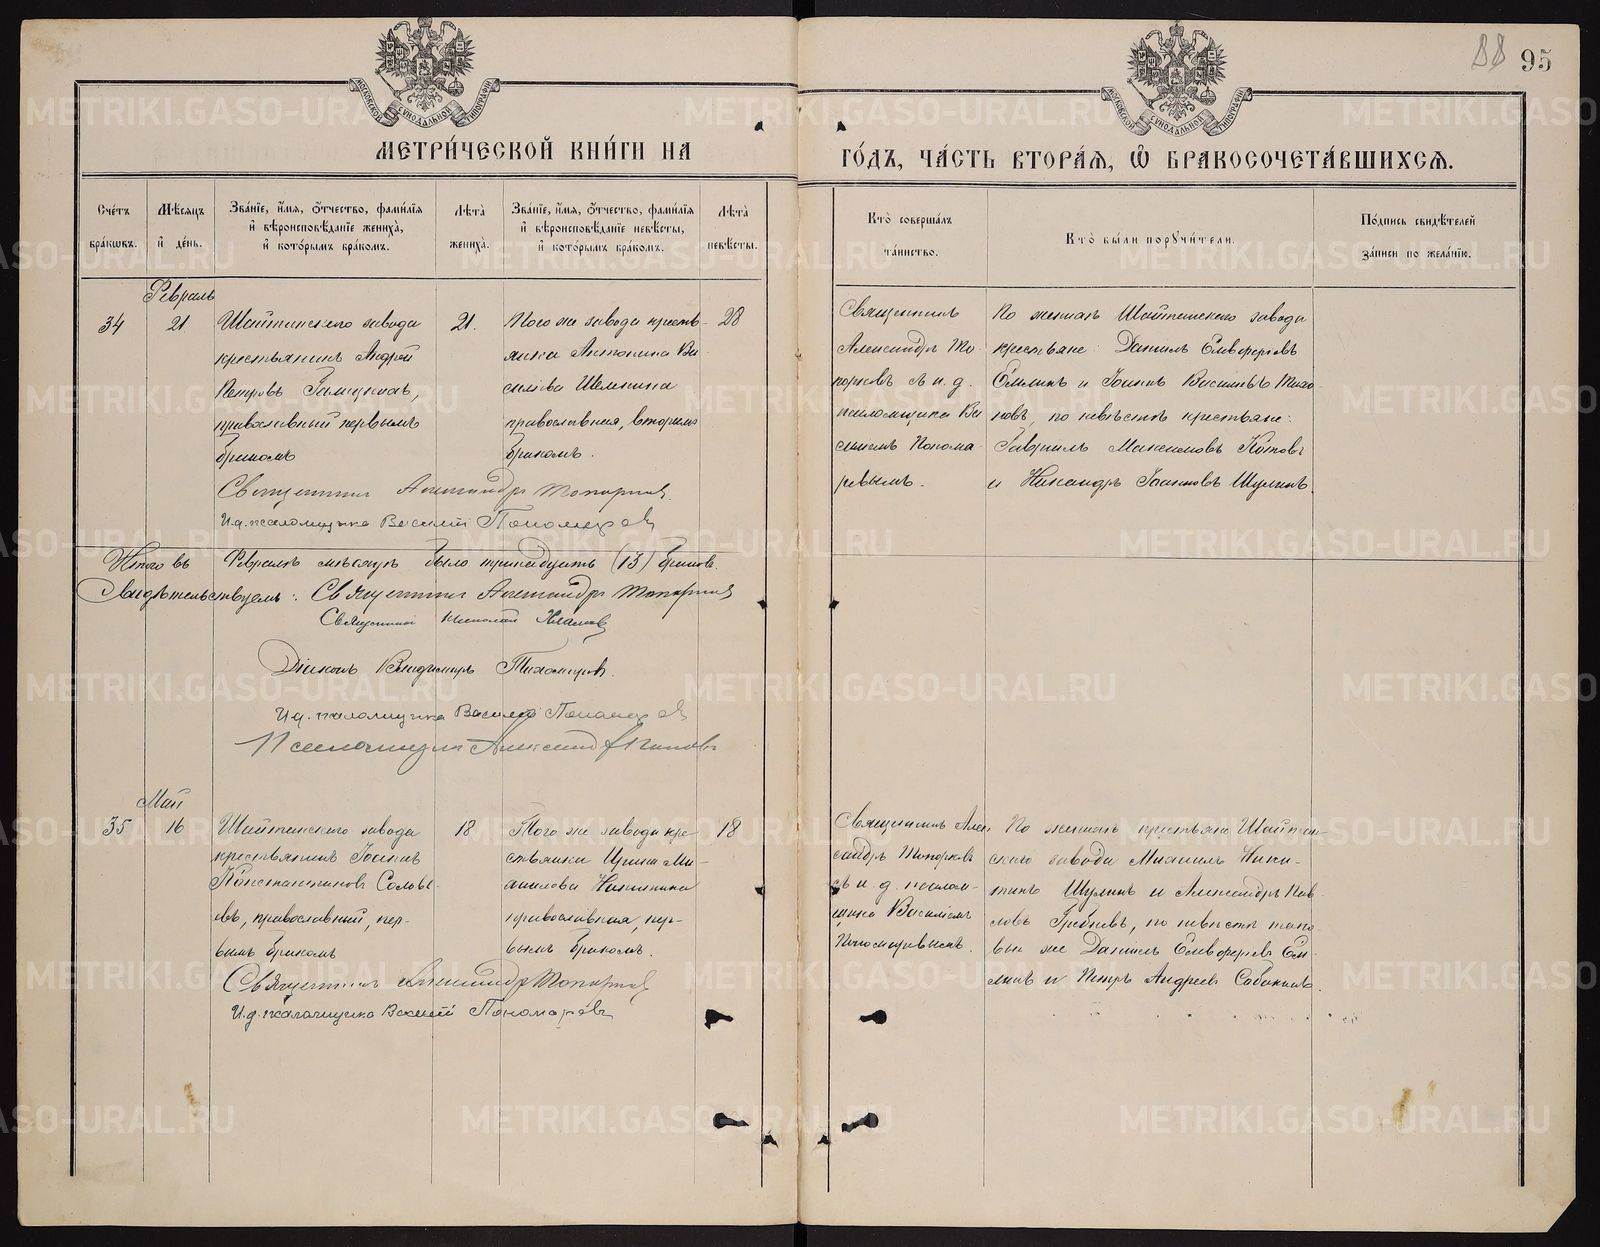 88 95
МЕТРИ́ЧЕСКОЙ КНИ́ГИ НА
ГО́ДЪ, ЧА́СТЬ ВТОРА́Я, Ѿ БРАКОСОЧЕТА́ВШИХСЯ.
Сче́тъ бра́ковъ.
Мѣ́сяцъ и҆ де́нь.
Зва́нїе, и҆́мя, ѻ҆́тчество, фами́лїя
и҆ вѣроисповѣ́данїе жениха̀,
и҆ кото́рымъ бра́комъ.
Лѣ́та жениха̀.
Зва́нїе, и҆́мя, ѻ҆́тчество, фами́лїя
и҆ вѣроисповѣ́данїе невѣ́сты,
и҆ кото́рымъ бра́комъ.
Лѣ́та невѣ́сты.
Кто̀ соверша́лъ
та́инство.
Кто̀ бы́ли порꙋчи́тели.
По́дпись свидѣ́телей
за́писи по жела́нїю.
Февраль
34
21
Шайтанскаго завода
крестьянинъ Андрей
Петровъ
православный первымъ
бракомъ
21.
Того же завода кресть-
янка Антонина Ва
силева
православная, вторымъ
бракомъ.
28
Священникъ
Александръ То
порковъ съ и. д.
псаломщика Ва
сильемъ Понома-
ревымъ.
По женихѣ Шайтанскаго завода
крестьяне: Данилъ Елевферьевъ
Емлинъ и Іоаннъ Васильевъ
по невѣстѣ крестьяне:
Гавріилъ Максимовъ Котовъ
и Никандръ Іоанновъ Шулинъ.
Священникъ Александръ Топорковъ
И.д. псаломщика Василій Пономаревъ
Итого въ Февралѣ мѣсяцѣ было тринадцать (13) браковъ.
Свидѣтельствуемъ: Священникъ Александръ Топорковъ
Священникъ Николай
Діаконъ Владимиръ Тихомировъ.
И.д. псаломщика Василій Пономаревъ
Псаломщикъ Александръ
Май
35
16
Шайтанскаго завода
крестьянинъ Іоаннъ
Константиновъ Соловь-
евъ, православный, пер-
вымъ бракомъ
18
Того же завода кре
стьянка Ирина Ми-
хаилова
православная, пер-
вымъ бракомъ.
18
Священникъ Алек
сандръ Топорковъ
съ и. д. псалом-
щика Василіемъ
Пономаревымъ.
По женихѣ крестьяне Шайтан-
скаго завода Михаилъ Ники-
тинъ Шулинъ и Александръ Пав
ловъ Гребневъ, по невѣстѣ тако-
вые же Данилъ Елевферьевъ Ем-
линъ и Петръ Андреевъ Собакинъ.
Священникъ Александръ Топорковъ
И.д. псаломщика Василій Пономаревъ